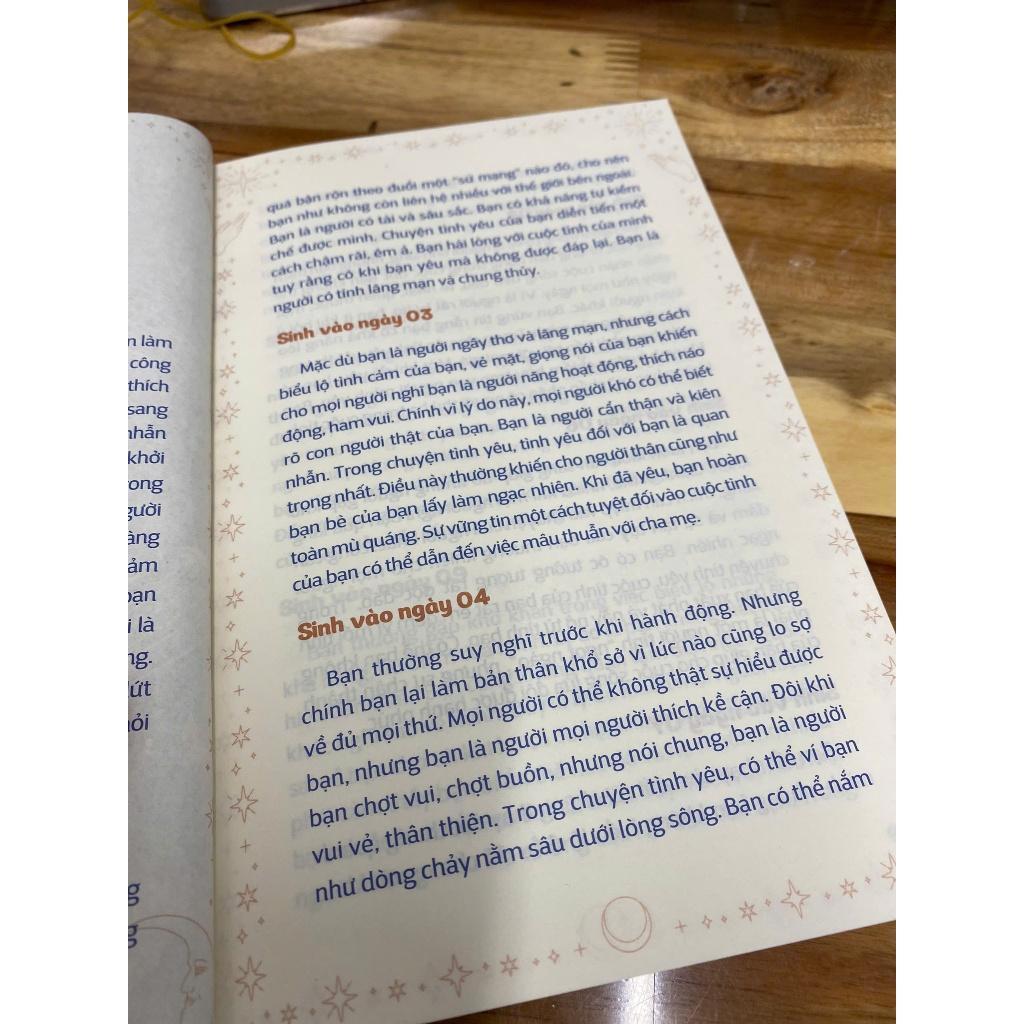 n làm
công
thích
sang
nhẫn
khởi
rong
gười
àng
ảm
bạn
i là
ng.
ứt
ỏi
g
g
quá bận rộn theo đuổi một "sứ mạng" nào đó, cho nên
bạn như không còn liên hệ nhiều với thế giới bên ngoài.
Bạn là người có tài và sâu sắc. Bạn có khả năng tự kiềm
chế được mình. Chuyện tình yêu của bạn diễn tiến một
cách chậm rãi, êm ả. Bạn hài lòng với cuộc tình của mình
tuy rằng có khi bạn yêu mà không được đáp lại. Bạn là
người có tính lãng mạn và chung thủy.
Sinh vào ngày 03
Mặc dù bạn là người ngây thơ và lãng mạn, nhưng cách
biểu lộ tình cảm của bạn, vẻ mặt, giọng nói của bạn khiến
cho mọi người nghĩ bạn là người năng hoạt động, thích náo
động, ham vui. Chính vì lý do này, mọi người khó có thể biết
rõ con người thật của bạn. Bạn là người cẩn thận và kiên
nhẫn. Trong chuyện tình yêu, tình yêu đối với bạn là quan
trọng nhất. Điều này thường khiến cho người thân cũng như
bạn bè của bạn lấy làm ngạc nhiên. Khi đã yêu, bạn hoàn
toàn mù quáng. Sự vững tin một cách tuyệt đối vào cuộc tình
của bạn có thể dẫn đến việc mâu thuẫn với cha mẹ.
Sinh vào ngày 04
Bạn thường suy nghĩ trước khi hành động. Nhưng
chính bạn lại làm bản thân khổ sở vì lúc nào cũng lo sợ
về đủ mọi thứ. Mọi người có thể không thật sự hiểu được
bạn, nhưng bạn là người mọi người thích kề cận. Đôi khi
bạn chợt vui, chợt buồn, nhưng nói chung, bạn là người
vui vẻ, thân thiện. Trong chuyện tình yêu, có thể ví bạn
như dòng chảy nằm sâu dưới lòng sông. Bạn có thể nắm